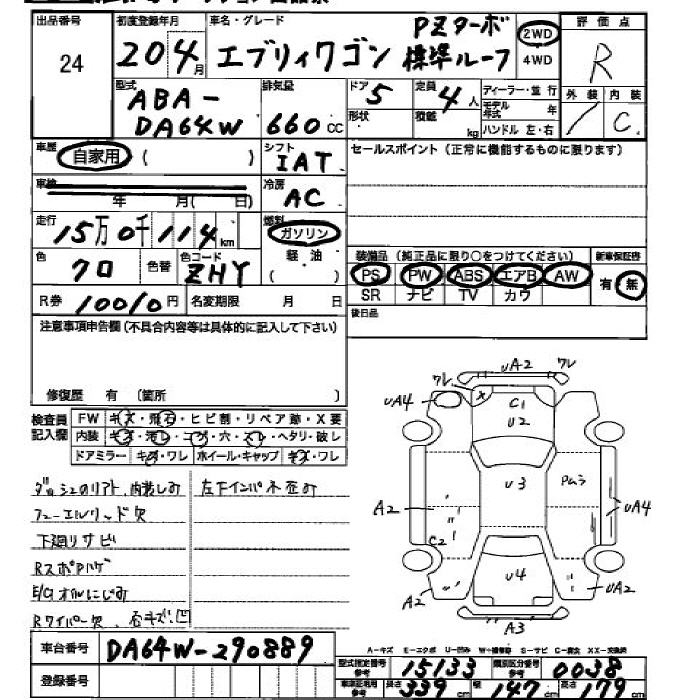 出品番号 初度登録年月 車名・グレード 評価点
24 20 4月 エブリィワゴン PZターボ 標準ルーフ 2WD 4WD R
型式 排気量 ドア 定員 ディーラー・並行 外装 内装
ABA-DA64W 660cc 5 4人 モデル年式 年 / C
形状 積載 kg ハンドル 左・右
車歴 自家用 ( ) シフト IAT セールスポイント(正常に機能するものに限ります)
車検 年 月( 日) 冷房 AC
走行 15万0千114km 燃料 ガソリン
色 クロ 色替 色コード ZHY 軽油 ( )
装備品(純正品に限り○をつけてください) 新車保証書
PS PW ABS エアB AW 有・無
SR ナビ TV カワ
R券 10010円 名変期限 月 日 後日品
注意事項申告欄(不具合内容等は具体的に記入して下さい)
修復歴 有(箇所 )
検査員記入欄 FW キズ・飛石・ヒビ割・リペア跡・X要
内装 キズ・汚レ・コゲ・穴・スレ・ヘタリ・破レ
ドアミラー キズ・ワレ ホイール・キャップ キズ・ワレ
内装しみ 左下インパネ歪み
フューエルリッド欠
下廻りサビ
RスポPハゲ
E/Gオイルにじみ
Rワイパー欠
ワレ UA2 ワレ
UA4 X C1
U2
A2 U3 Pムラ UA4
C2
U4
A2 UA2
A3
A-キズ E-エクボ U-凹み W-補修跡 S-サビ C-腐食 XX-交換済
車台番号 DA64W-290889
登録番号
型式指定番号 15133 類別区分番号 0038
長さ 339cm 幅 147cm 高さ 179cm